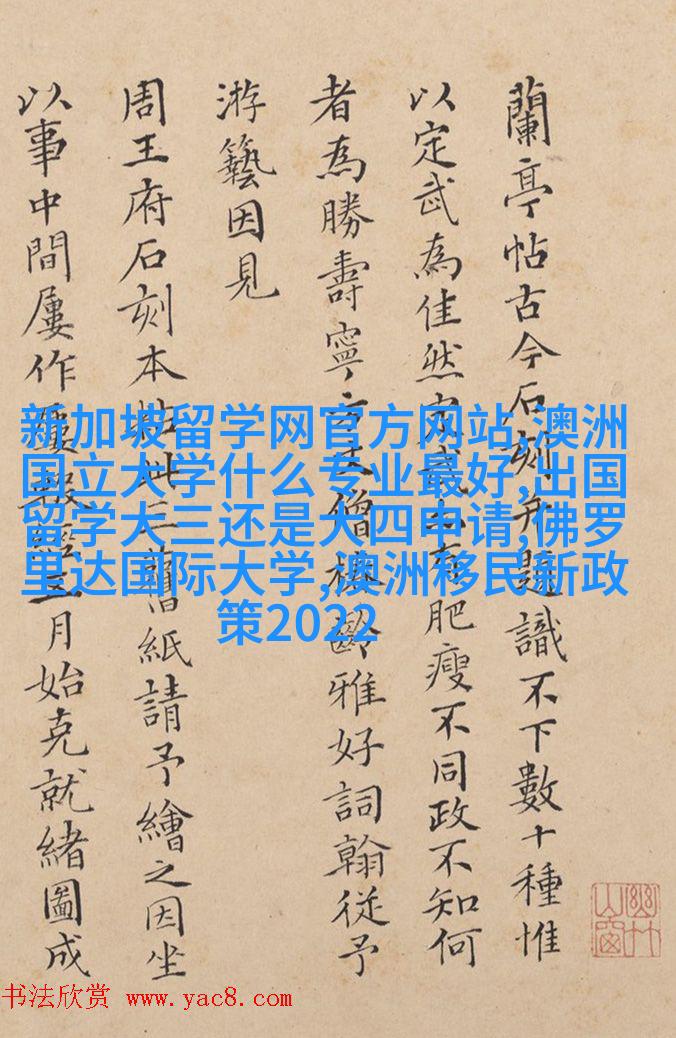 蘭亭帖古今石刻并題識不下數十種惟
以定武為佳然定武有肥瘦不同政不知何
者為勝壽寧方丈僧齡雅好詞翰從予
游藝因見
周王府石刻本此三舊紙請予繪之因坐
以事中間屢作屢輟經三月始克就緒圖成
新加坡留学网官方网站,澳洲
国立大学什么专业最好,出国
留学大三还是大四申请,佛罗
里达国际大学,澳洲移民新政
策2022
幽竹山窗
书法欣赏 www.yac8.com